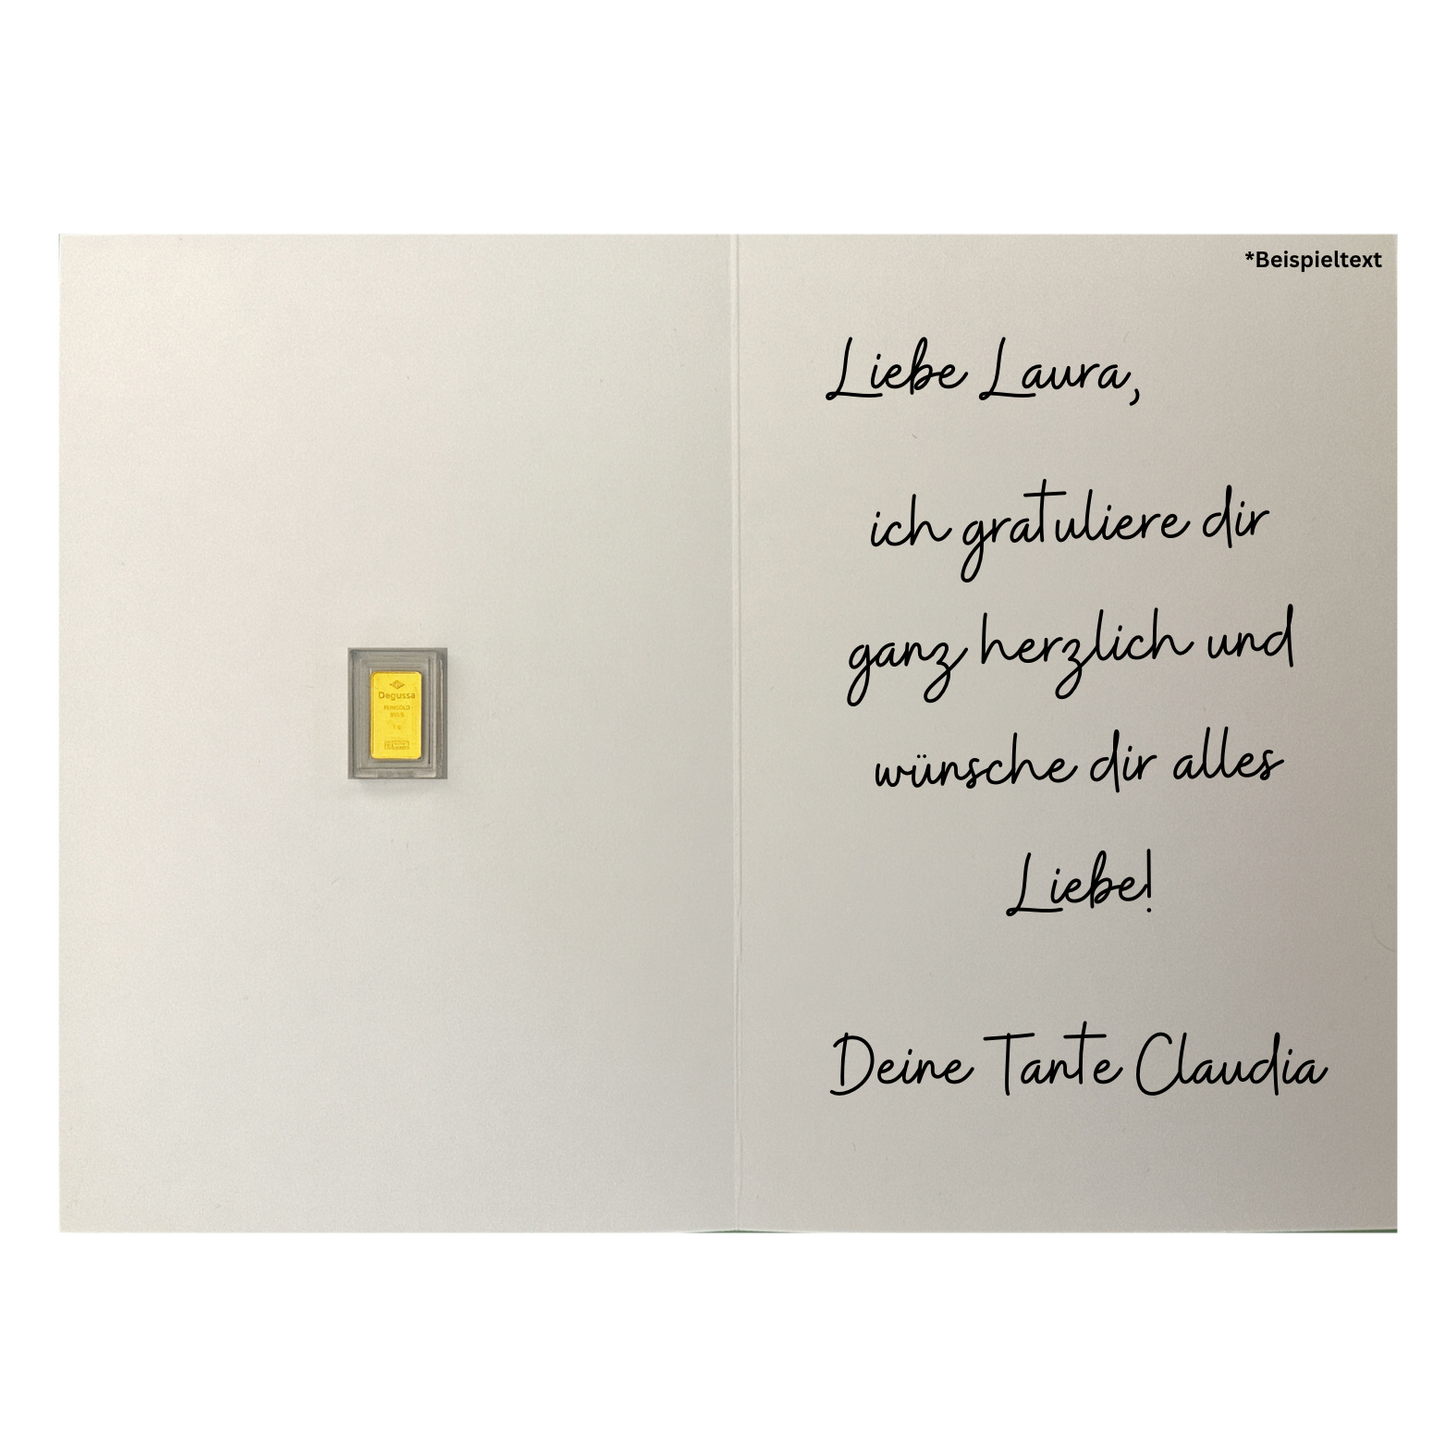 *Beispieltext
Liebe Laura,
ich gratuliere dir
ganz herzlich und
wünsche dir alles
Liebe!
Deine Tante Claudia
Degussa
FEINGOLD
999.9
1 g